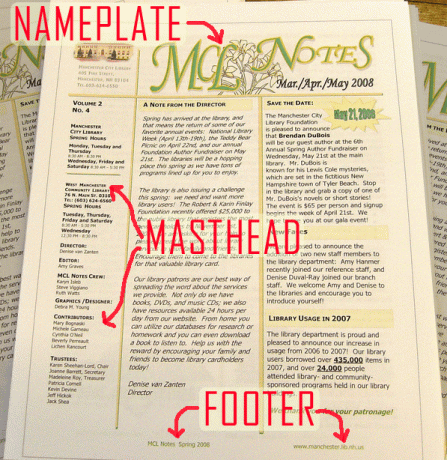 NAMEPLATE
MCL NOTES
Mar./Apr./May 2008
Manchester City Library
405 Pine Street
Manchester, NH 03104
Tel: 603-624-6550
VOLUME 2
NO. 4
MANCHESTER
CITY LIBRARY
SPRING HOURS
Monday, Tuesday and
Thursday
8:30 AM - 8:30 PM
Wednesday, Friday and
Saturday
8:30 AM - 5:30 PM
WEST MANCHESTER
COMMUNITY LIBRARY
76 N. MAIN ST.
TEL: (603) 624-6560
SPRING HOURS
Tuesday, Thursday,
Friday and Saturday
Wednesday
DIRECTOR:
Denise van Zanten
EDITOR:
Amy Graves
MCL NOTES CREW:
Karyn Isleb
Steve Viggiano
Ruth Watts
GRAPHICS /DESIGNER:
Debra M. Young
CONTRIBUTORS:
Mary Bognaski
Michele Garneau
Cynthia O'Neil
Beverly Perreault
Lichen Rancourt
TRUSTEES:
Karen Sheehan-Lord, Chair
Joanne Barrett, Secretary
Madeleine Roy, Treasurer
Patricia Cornell
Kevin Devine
Jeff Hickok
Jack Shea
A NOTE FROM THE DIRECTOR
Spring has arrived at the library, and
that means the return of some of our
favorite annual events: National Library
Week (April 13th-19th), the Teddy Bear
Picnic on April 22nd, and our annual
Foundation Author Fundraiser on May
21st. The libraries will be a hopping
place this spring as we have tons of
programs lined up for you to enjoy.
The library is also issuing a challenge
this spring: we need and want more
library users! The Robert & Karin Finlay
Foundation recently offered $25,000 to
encourage them to come to the libraries
for that valuable library card.
Our library patrons are our best way of
spreading the word about the services
we provide. Not only do we have
books, DVDs, and music CDs; we also
have resources available 24 hours per
day from our website. From home you
can utilize our databases for research or
homework and you can even download
a book to listen to. Help us with the
reward by encouraging your family and
friends to become library cardholders
today!
Denise van Zanten
Director
SAVE THE DATE:
May 21, 2008
The Manchester City
Library Foundation
is pleased to announce
that Brendan DuBois
will be our guest author at the 6th
Annual Spring Author Fundraiser on
Wednesday, May 21st at the main
library. Mr. DuBois is
known for his Lewis Cole mysteries,
which are set in the fictitious New
Hampshire town of Tyler Beach. Stop
in the library and grab a copy of one of
Mr. DuBois's novels or short stories!
The event is $65 per person and signup
begins the week of April 21st. We
you at our gala event!
FACES
pleased to announce the
two new staff members to
the library department: Amy Hanmer
recently joined our reference staff, and
Denise Duval-Ray joined our branch
staff. We welcome Amy and Denise to
the libraries and encourage you to
introduce yourself!
LIBRARY USAGE IN 2007
The library department is proud and
pleased to announce our increase in
usage from 2006 to 2007! Our library
users borrowed over 435,000 items in
2007, and over 24,000 people
attended library- and community-
sponsored programs held in our library
for your patronage!
MASTHEAD
FOOTER
MCL Notes Spring 2008
www.manchester.lib.nh.us